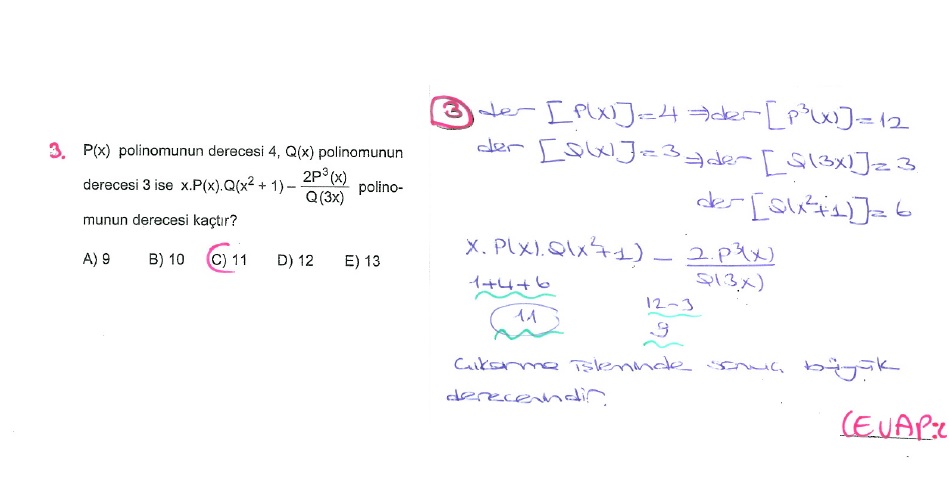 3. P(x) polinomunun derecesi 4, Q(x) polinomunun
derecesi 3 ise x.P(x).Q(x² + 1) – 2P³(x) / Q(3x) polino-
munun derecesi kaçtır?
A) 9 B) 10 C) 11 D) 12 E) 13
3 der [P(x)]=4 ⇒ der [P³(x)]=12
der [Q(x)]=3 ⇒ der [Q(3x)]=3
der [Q(x²+1)]=6
x.P(x).Q(x²+1) – 2.P³(x) / Q(3x)
1+4+6 12-3
11 9
Çıkarma işleminde sonuç büyük
derecelidir.
CEVAP:C